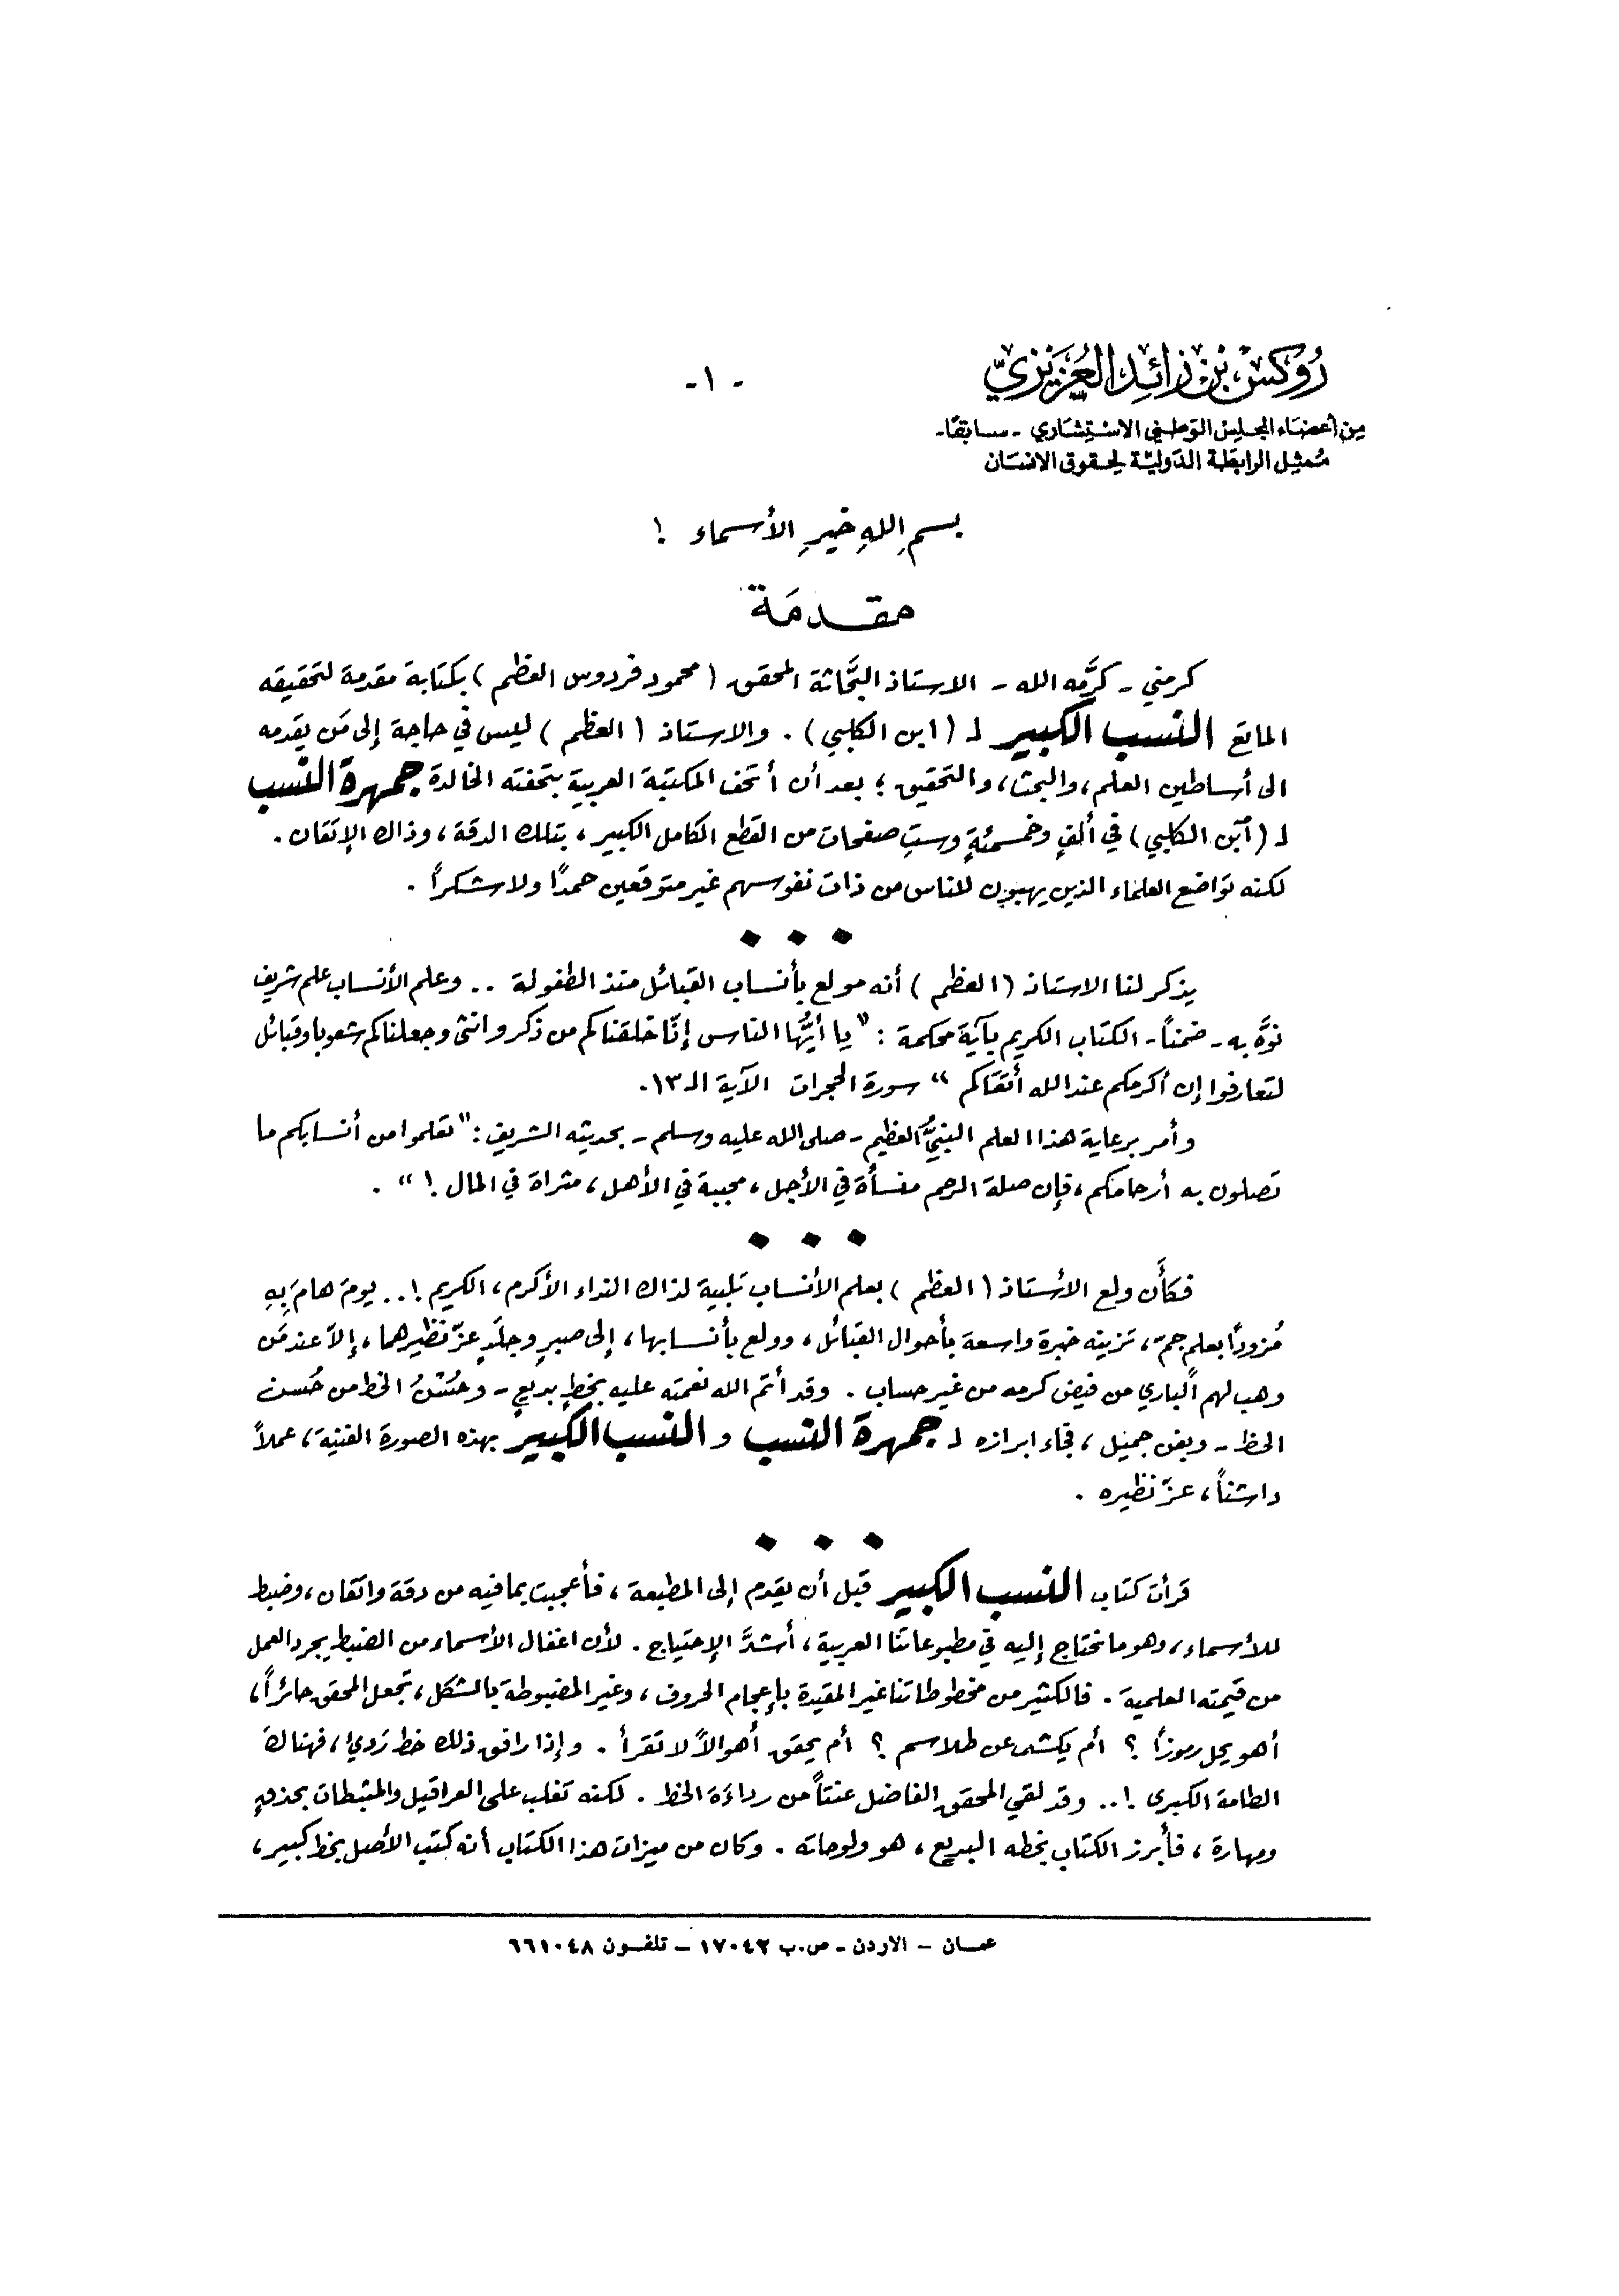 رُوكسْ بْن زائِد العُزَيْزيّ
- ١ -
مِن أعضَاء المجلِس الوَطني الاسْتِشَاري - سَابقًا -
مُمثِل الرابطَة الدَوليّة لحقوق الانسَان
بسمِ اللهِ خيرِ الأسماء !
مقدمَة
كرمني - كرَّمه الله - الاستاذ البحَّاثة المحقق ( محمود فردوس العظم ) بكتابة مقدمة لتحقيقه
الماتع النسب الكبير لـ ( ابن الكلبي ) . والاستاذ ( العظم ) ليس في حاجة إلى مَن يقدمه
الى أساطين العلم ، والبحث ، والتحقيق ؛ بعد أن أتحف المكتبة العربية بتحفته الخالدة جمهرة النسب
لـ ( ابن الكلبي ) في ألفٍ وخمسمئةٍ وستِ صفحات من القطع الكامل الكبير ، بتلك الدقة ، وذاك الإتقان .
لكنه تواضع العلماء الذين يهبون للناس من ذات نفوسهم غير متوقعين حمدًا ولا شكراً .
يذكر لنا الاستاذ ( العظم ) أنه مولع بأنساب القبائل منذ الطفولة .. وعلم الأنساب علم شريف
نوَّه به - ضمناً - الكتاب الكريم بآية محكمة : " يا أيُّها الناس إنّا خلقناكم من ذكر وانثى وجعلناكم شعوبا وقبائل
لتعارفوا إن أكرمكم عند الله أتقاكم " سورة الحجرات الآية الـ ١٣ .
وأمر برعاية هذا العلم النبيُّ العظيم - صلى الله عليه وسلم - بحديثه الشريف : " تعلموا من أنسابكم ما
تصلون به أرحامكم ، فإن صلة الرحم منسأة في الأجل ، محببة في الأهل ، مثراة في المال ! " .
فكأَن ولع الأستاذ ( العظم ) بعلم الأنساب تلبية لذاك النداء الأكرم ، الكريم ! .. يومَ هامَ بِهِ
مُزودًا بعلم جمّ ، تزينه خبرة واسعة بأحوال القبائل ، وولع بأنسابها ، إلى صبرٍ وجلَدٍ عزّ نظيرهما ، إلاّ عند مَن
وهب لهم الباري من فيض كرمه من غير حساب . وقد أتم الله نعمته عليه بخطٍ بديعٍ - وحُسْنُ الخط من حُسن
الحظ - وبفن جميل ، فجاء ابرازه لـ جمهرة النسب و النسب الكبير بهذه الصورة الفنية ، عملاً
داشناً ، عزّ نظيره .
قرأت كتاب النسب الكبير قبل أن يقدم إلى المطبعة ، فأعجبت بما فيه من دقة واتقان ، وضبط
للأسماء ، وهو ما نحتاج إليه في مطبوعاتنا العربية ، أشدَّ الإحتياج . لأن اغفال الأسماء من الضبط يجرد العمل
من قيمته العلمية . فالكثير من مخطوطاتنا غير المقيدة بإعجام الحروف ، وغير المضبوطة بالشكل ، تجعل المحقق حائراً ،
أهو يحل رموزاً ؟ أم يكشف عن طلاسم ؟ أم يحقق أهوالاً لا تقرأ . وإذا رافق ذلك خط رديئ ، فهناك
الطامة الكبرى ! .. وقد لقي المحقق الفاضل عنتاً من رداءَة الخط . لكنه تغلب على العراقيل والمثبطات بحذقٍ
ومهارة ، فأبرز الكتاب بخطه البديع ، هو ولوحاته . وكان من ميزات هذا الكتاب أنه كتب الأصل بخط كبير ،
عمـان - الاردن - ص.ب ١٧٠٤٢ - تلفـون ٦٦١٠٤٨